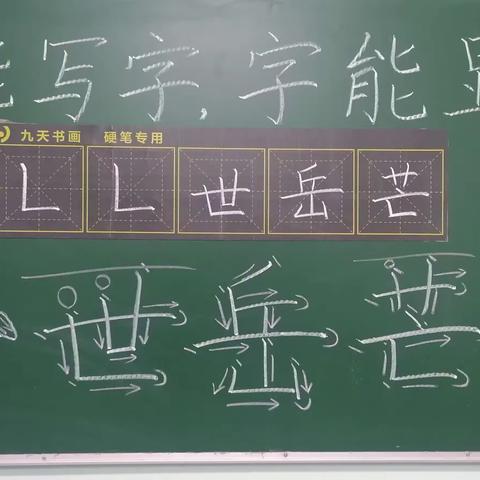 能写字,字能
九天书画 硬笔专用
L L 世 岳 芒
世 岳 芒